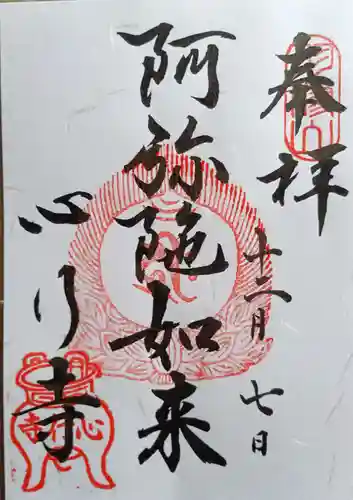 奉拝
十二月七日
阿弥陀如来
心行寺
心行寺